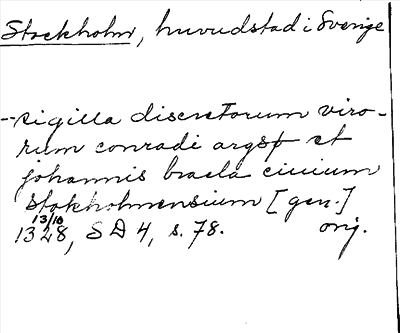 Stockholm, huvudstad i Sverige
--sigilla discretorum viro-
rum conradi argsp et
johannis braela ciuium
stokholmensium [gen.]
13/10
1328, SD 4, s. 78. orig.